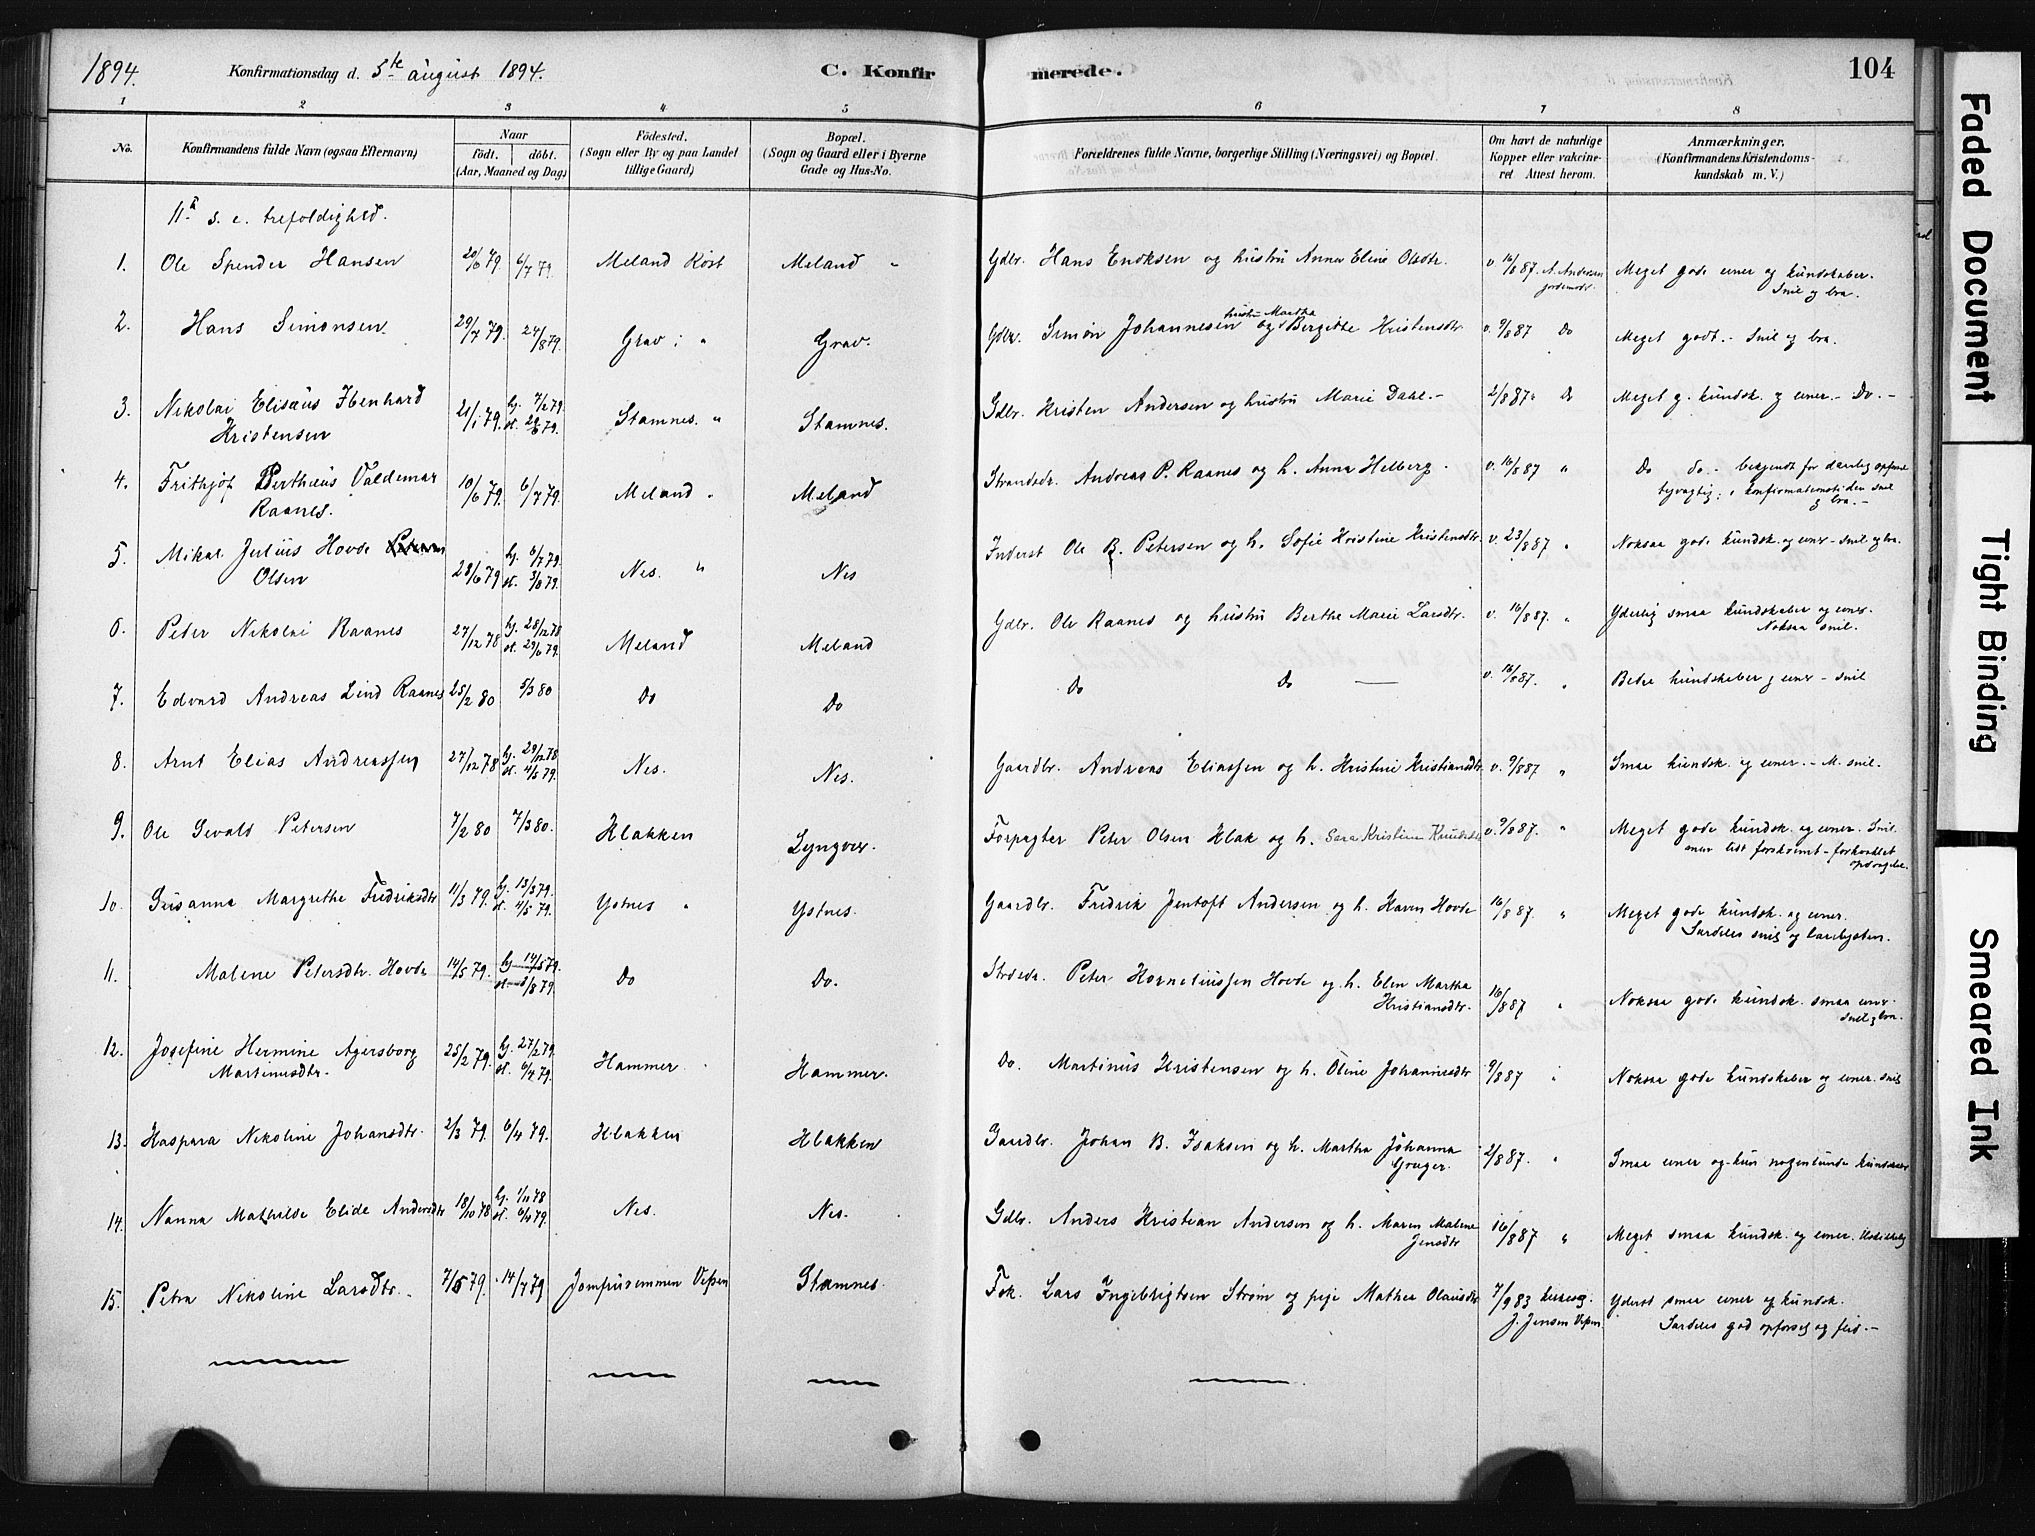 1894. Konfirmationsdag d. 5te august 1894. C. Konfirmerede. 104
1 2 3 4 5 6 7 8
No. Konfirmandens fulde Navn (ogsaa Efternavn) Naar födt. döbt. (Aar, Maaned og Dag) Födested. (Sogn eller By og paa Landet tillige Gaard) Bopæl. (Sogn og Gaard eller i Byerne Gade og Hus-No. Forældrenes fulde Navne, borgerlige Stilling (Næringsvei) og Bopæl. Om havt de naturlige Kopper eller vakcineret Attest herom. Anmærkninger. (Konfirmandens Kristendomskundskab m. V.)
11te s. e. trefoldighed.
1. Ole Spender Hansen 20/6 79 6/7 79. Meland Meland Gdbr. Hans Enoksen og hustru Anna Eline Olsdtr. v. 16/8 87. A. Andersen jordemodr. Meget gode evner og kundskaber. Snil og bra.
2. Hans Simonsen 29/7 79. 24/8 79. Grav Grav. Gdbr. Simon Johannesen og hustru Martha Bergitte Kristensdtr. v. 9/8 87 Do Meget godt. - Snil og bra.
3. Nikolai Elisæus Kristensen 21/1 79. hj. 7/2 79. st. 79. Stamnes. " Stamnes. Gdbr. Kristen Andersen og hustru Marie Dahl. - 2/8 87 Do Meget g. kundsk. og evner. - Do. -
4. Frithjof Berthæus Valdemar Raanes. 10/6 79. 6/7 79. Meland " Meland Strandsdr. Andreas P. Raanes og h. Anna Helberg. v. 16/8 87 " Do do. - i konfirmationstiden snil og bra. -
5. Mikal Julius Hovde Olsen 28/6 79 hj. 6/7 79. st. 3/8 79. Nes. " Nes Inderst Ole B. Petersen og h. Sofie Kristine Kristensdtr. v. 23/8 87 " Noksaa gode kundsk. og evner - snil og bra.
6. Peter Nikolai Raanes 27/12 78 hj. 28/12 78 st. 29/6 79. Meland Meland Gdbr. Ole Raanes og hustru Berthe Marie Larsdtr. v. 16/8 87. " Yderlig smaa kundskaber og evner. Noksaa snil.
7. Edvard Andreas Lind Raanes 25/2 80 5/3 80 Do Do Do Do v. 16/8 87. " Bedre kundskaber og evner - snil
8. Arnt Elias Andreassen 27/12 78 hj. 29/12 78 st. 4/5 79. Nes. Nes. Gaardbr. Andreas Eliassen og h. Kristine Kristiansdtr. v. 9/8 87 " Smaa kundsk. og evner. - M. snil.
9. Ole Sevald Petersen 7/2 80 7/3 80. Klakken Lyngvær. Forpagter Peter Olsen Klak og h. Sara Kristine v. 9/8 87. " Meget gode kundsk. og evner. Snil men lidt forskræmt - forkuet opdragelse.
10. Susanna Margrethe Fredriksdtr 11/3 79. hj. 13/3 79. st. 4/5 79. Ystnes " Ystnes. Gaardbr. Fredrik Jentoft Andersen og h. Karen Hovde 16/8 87. " Meget gode kundsk. og evner. Særdeles snil og lærelysten.
11. Malene Petersdtr. Hovde 14/5 79. hj. 14/5 79. st. 3/8 79. Do Do. Peter Korneliussen Hovde og h. Elen Martha Kristiansdtr. 16/8 87 " Noksaa gode kundsk. smaa evner. snil og bra.
12. Josefine Hermine Agersborg Martinusdtr. 25/2 79. hj. 27/2 79. st. 6/4 79. Hammer. Hammer. Do. Martinus Kristensen og h. Oline Johannesdtr 9/8 87 " Noksaa gode kundskaber og evner. snil
13. Kaspara Nikoline Johansdtr. 2/3 79. 6/4 79. Klakken Klakken Gaardbr. Johan B. Isaksen og h. Martha Johanna 2/8 87. " Smaa evner og kun nogenlunde kundskaber
14. Nanna Mathilde Elide Andersdtr 18/10 78 hj. 1/11 78 st. 6/4 79. Nes. Nes. Gdbr. Anders Kristian Andersen og h. Maren Malene Jensdtr 16/8 87 " Meget smaa kundsk. og evner.
15. Petra Nikoline Larsdtr. 7/5 79. 14/7 79 Vefsen Stamnes Fsk. Lars Ingebrigtsen Strøm og pige Mathea Olausdtr 7/9 83 J. Jensen Vefsen. Yderst smaa evner og kundsk. Særdeles god opførsel og flid. -
Faded Document
Tight Binding
Smeared Ink